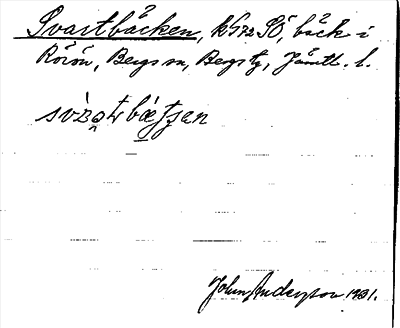 Svartbäcken, k572SÖ, bäck i
Rörön, Bergs sn, Bergs tg, Jämtl. l.
svàʈbæʈʂen
John Anderson 1931.